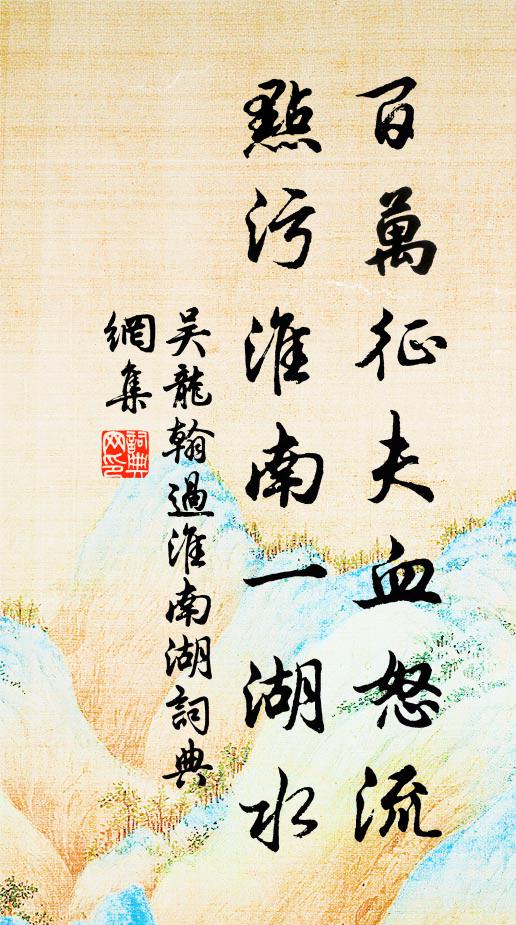 百萬征夫血怒流
點污淮南一湖水
吳龍翰過淮南湖詞典
網集
詞典
網印